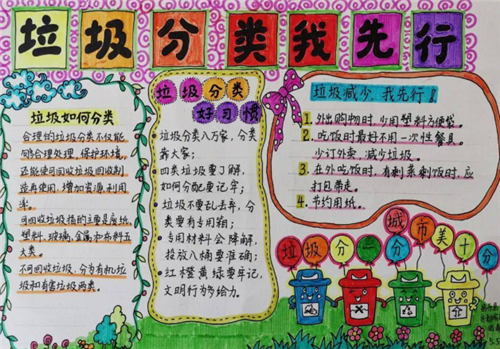 垃圾分类我先行
垃圾如何分类
合理的垃圾分类不仅能
够合理处理,保护环境,
还能使可回收垃圾回收制
造再使用,增加资源利用
率。
可回收垃圾指的主要是废纸,
塑料,玻璃,金属和布料五
大类。
不可回收垃圾,分为有机垃
圾和有害垃圾两类。
垃圾分类
好习惯
垃圾分类入万家,分类
靠大家;
四类垃圾要了解,
如何分配要记牢;
垃圾不要乱丢弃,分
类要有专用箱;
专用材料会降解,
投放入桶要准确;
红、橙、黄、绿要牢记,
文明行为多给力。
垃圾减少,我先行!
1. 外出购物时,少用塑料方便袋。
2. 吃饭时最好不用一次性餐具。
少订外卖,减少垃圾。
3. 在外吃饭时,有剩菜剩饭时,应
打包带走。
4. 节约用纸。
垃圾分一分
城市美十分